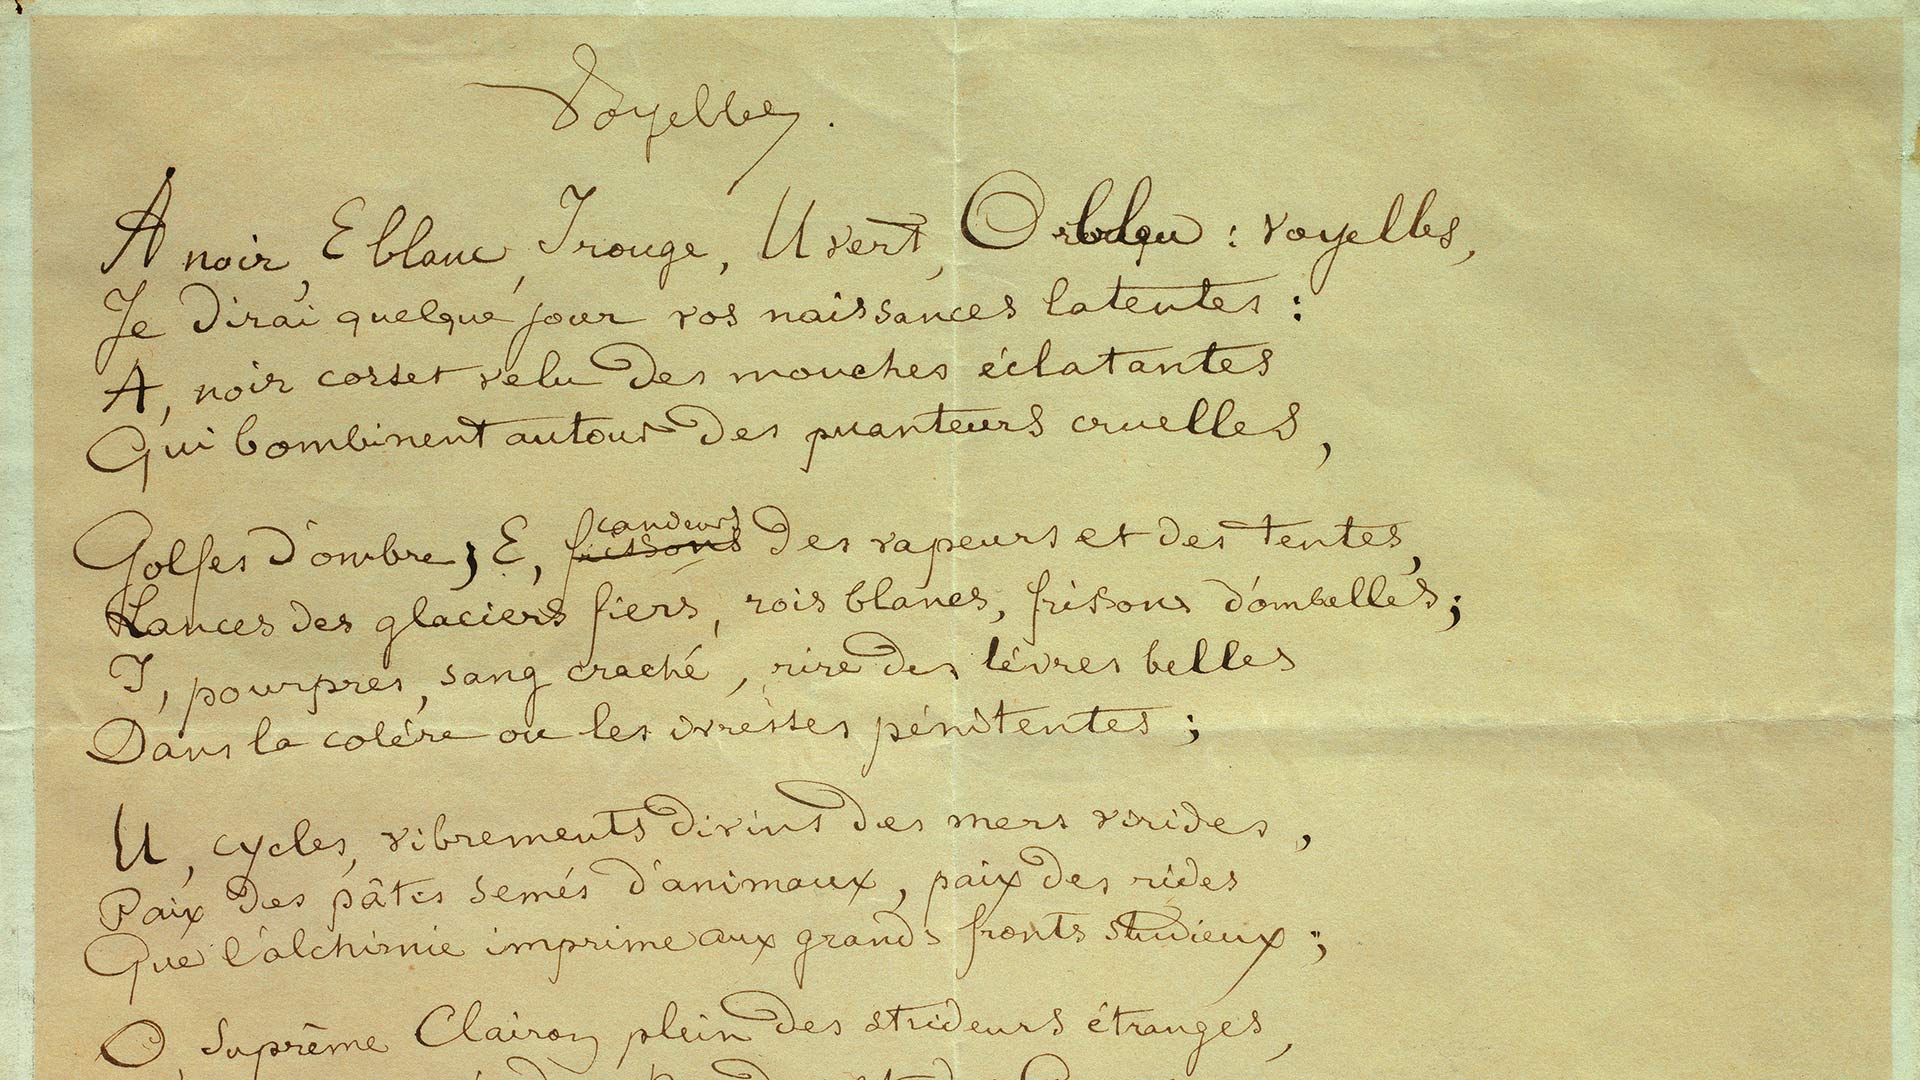 Voyelles.
A noir, E blanc, I rouge, U vert, O bleu : voyelles,
Je dirai quelque jour vos naissances latentes :
A, noir corset velu des mouches éclatantes
Qui bombinent autour des puanteurs cruelles,
Golfes d'ombre; E, frissons candeurs des vapeurs et des tentes,
Lances des glaciers fiers, rois blancs, frissons d'ombelles;
I, pourpres, sang craché, rire des lèvres belles
Dans la colère ou les ivresses pénitentes;
U, cycles, vibrements divins des mers virides,
Paix des pâtis semés d'animaux, paix des rides
Que l'alchimie imprime aux grands fronts studieux;
O, Suprême Clairon plein des strideurs étranges,